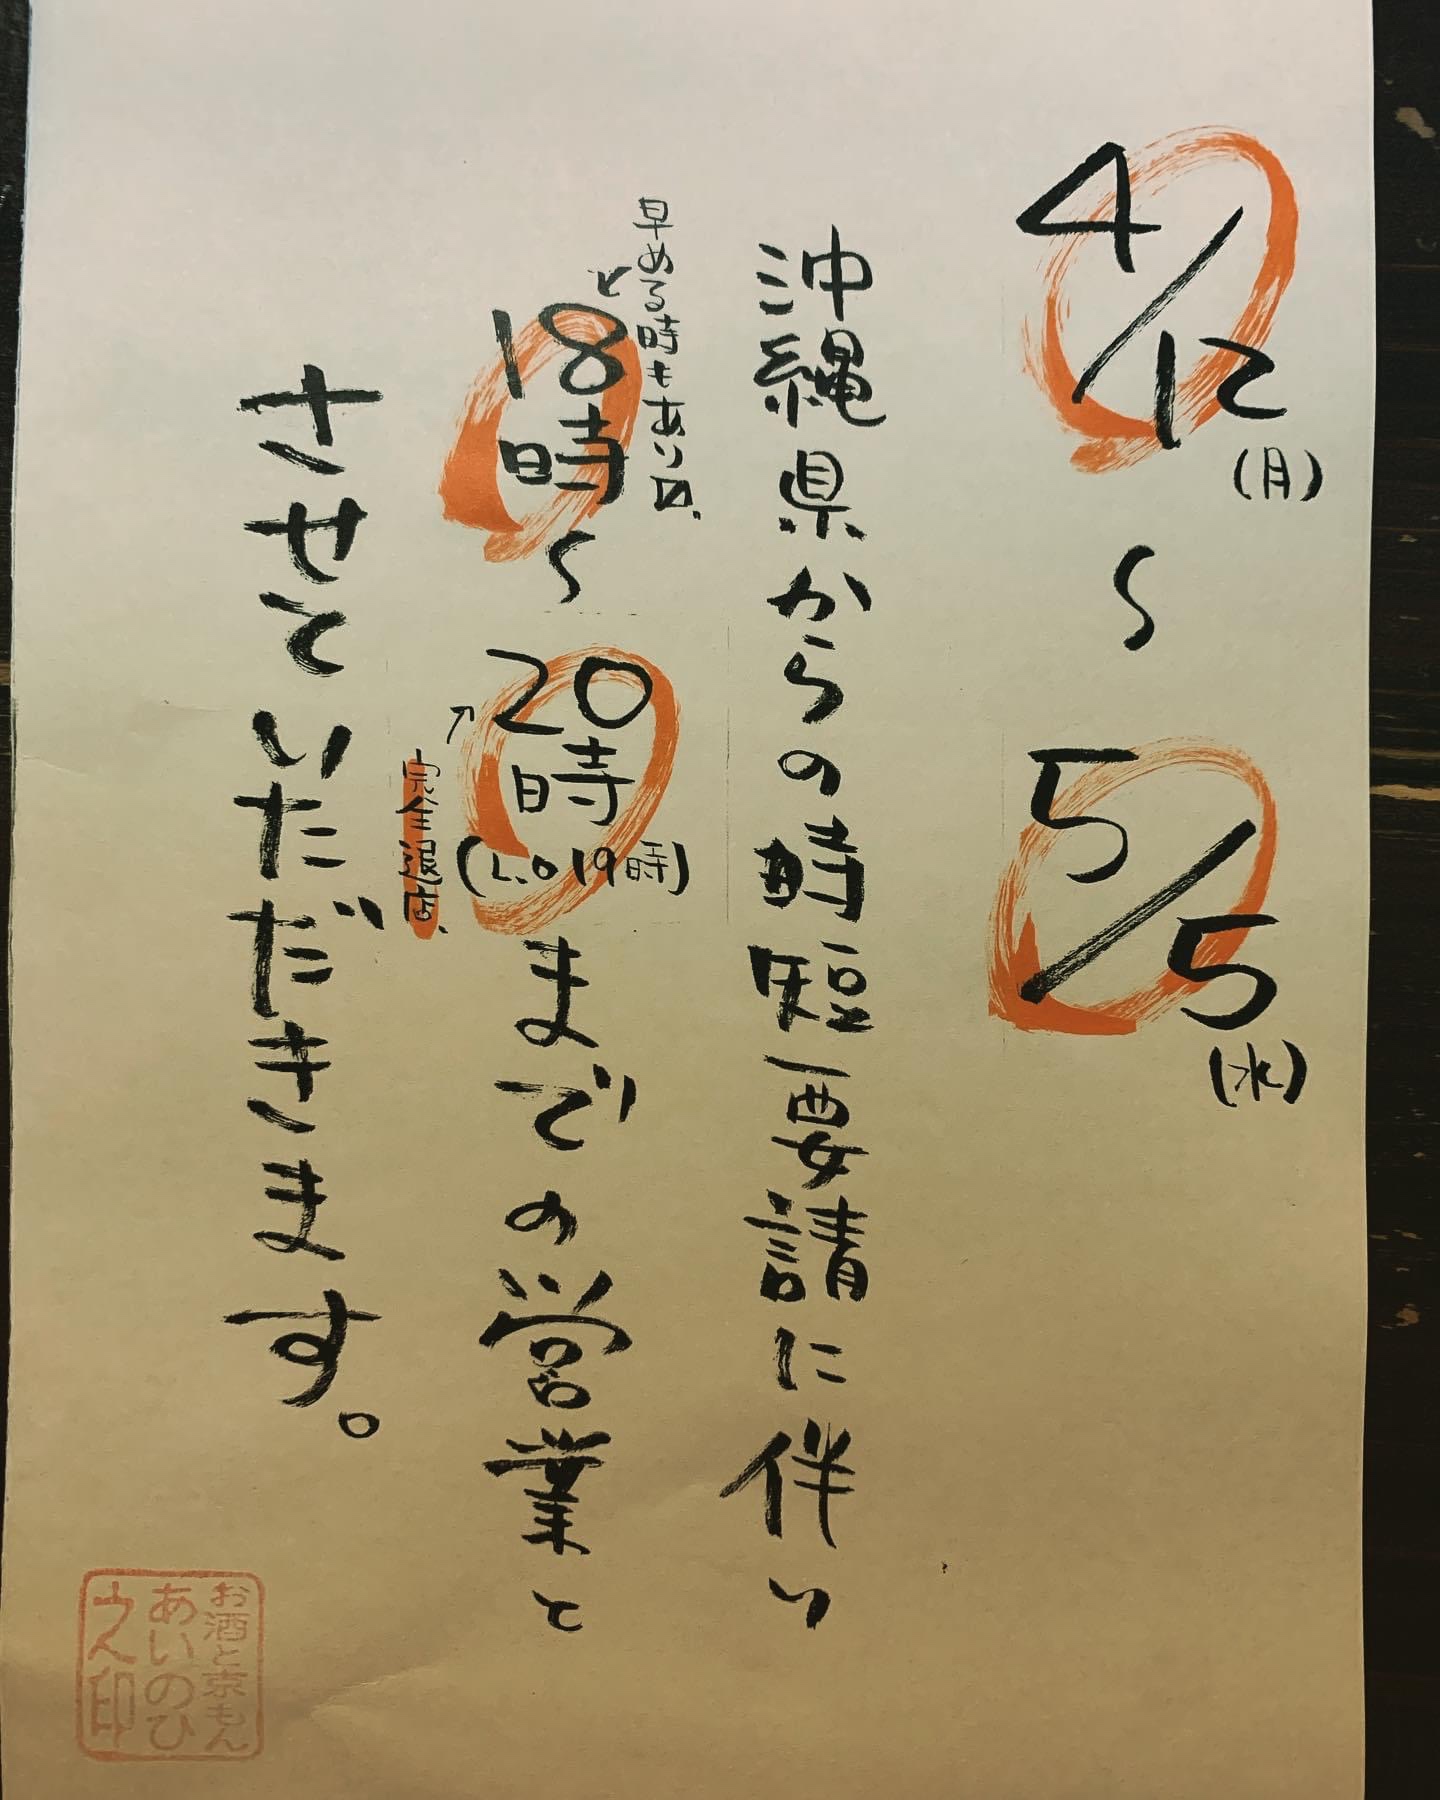 4/12(月)〜5/5(水)
沖縄県からの時短要請に伴い
早める時もあり〼。
18時〜20時(L.O 19時)までの営業と
完全退店
させていただきます。
お酒と京もん
あいのひ
之印